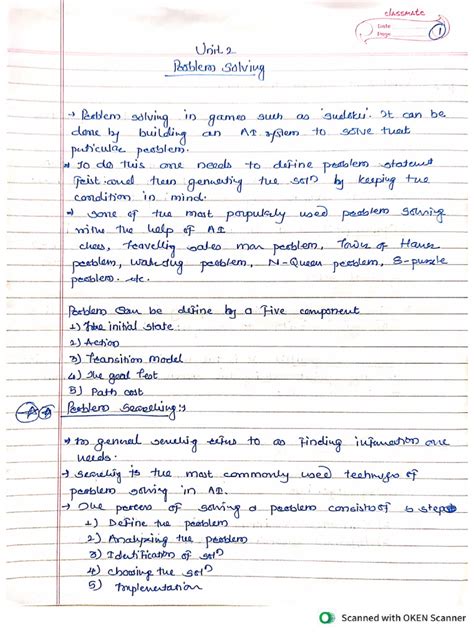 classmate
Date
Page 1
Unit 2
Problem Solving
→ Problem solving in games such as 'sudoku'. It can be
done by building an AI system to solve that
puticulae problem.
→ To do this one needs to define problem statement
first and then genuating the solⁿ by keeping the
condition in mind.
→ Some of the most porpulaly used problem solving
the help of AI
chess, Travelling sales man problem, Tower of Hanoi
problem, problem, N-Queen problem, 8-puzzle
problem. etc.
Problem can be define by a five component
1) The initial state:
2) Action
3) Transition model
4) The goal test
5) Path cost
Problem Searching:
→ In general searching refers to as finding information one
needs.
→ searching is the most commonly used of
problem solving in AI.
→ The process of solving a problem consists of 5 steps
1) Define the problem
2) Analyzing the problem
3) Identification of solⁿ
4) choosing the solⁿ
5) Implementation
Scanned with OKEN Scanner